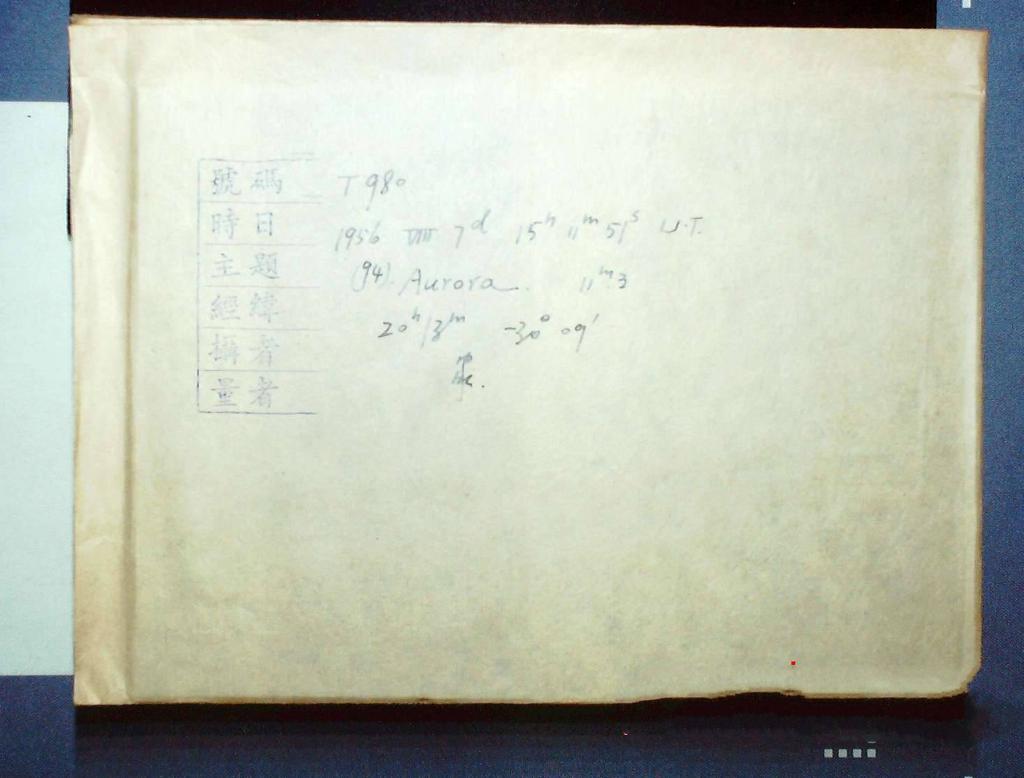 號碼 T980
時日 1956 VIII 7d 15h 11m 51s U.T.
主題 (94). Aurora. 11m3
經緯 20h 13m -30° 09'
攝者
量者